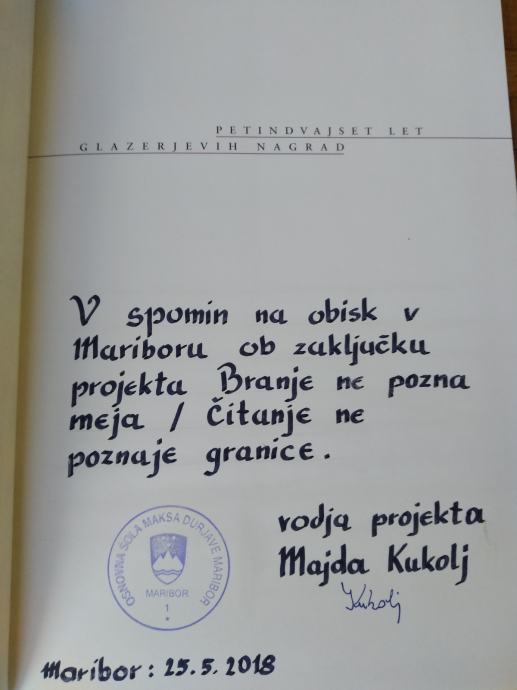 PETINDVAJSET LET
GLAZERJEVIH NAGRAD
V spomin na obisk v
Mariboru ob zaključku
projekta Branje ne pozna
meja / Čitanje ne
poznaje granice.
vodja projekta
Majda Kukolj
Kukolj
OSNOVNA ŠOLA MAKSA DURJAVE MARIBOR
MARIBOR
1
*
Maribor: 25.5.2018